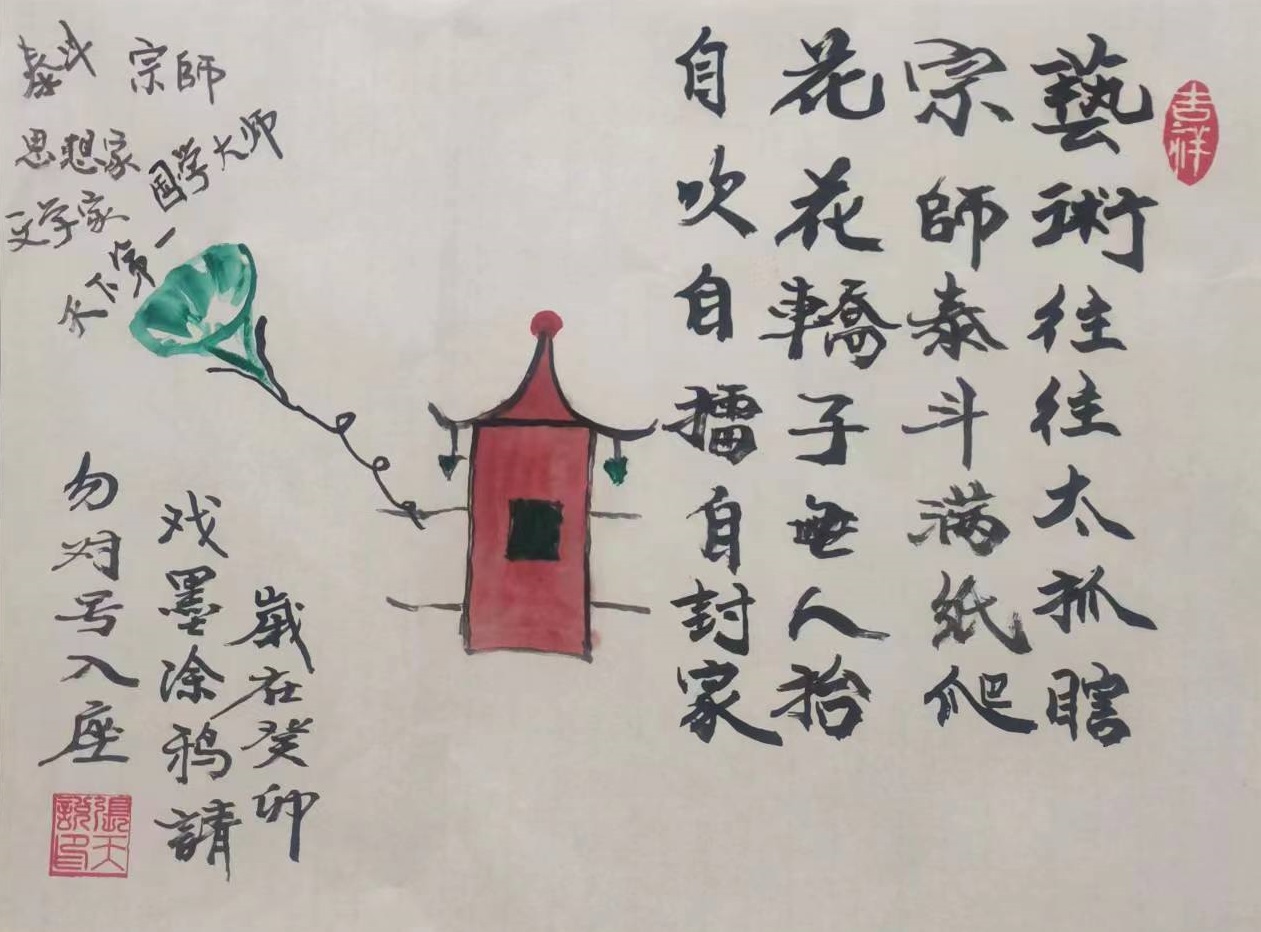 吉祥
藝術往往太抓瞎
宗師泰斗满紙爬
花花轎子無人抬
自吹自擂自封家
泰斗 宗師
思想家
文学家
天下第一国学大师
歲在癸卯
戏墨涂鸦請
勿对号入座
張天說印